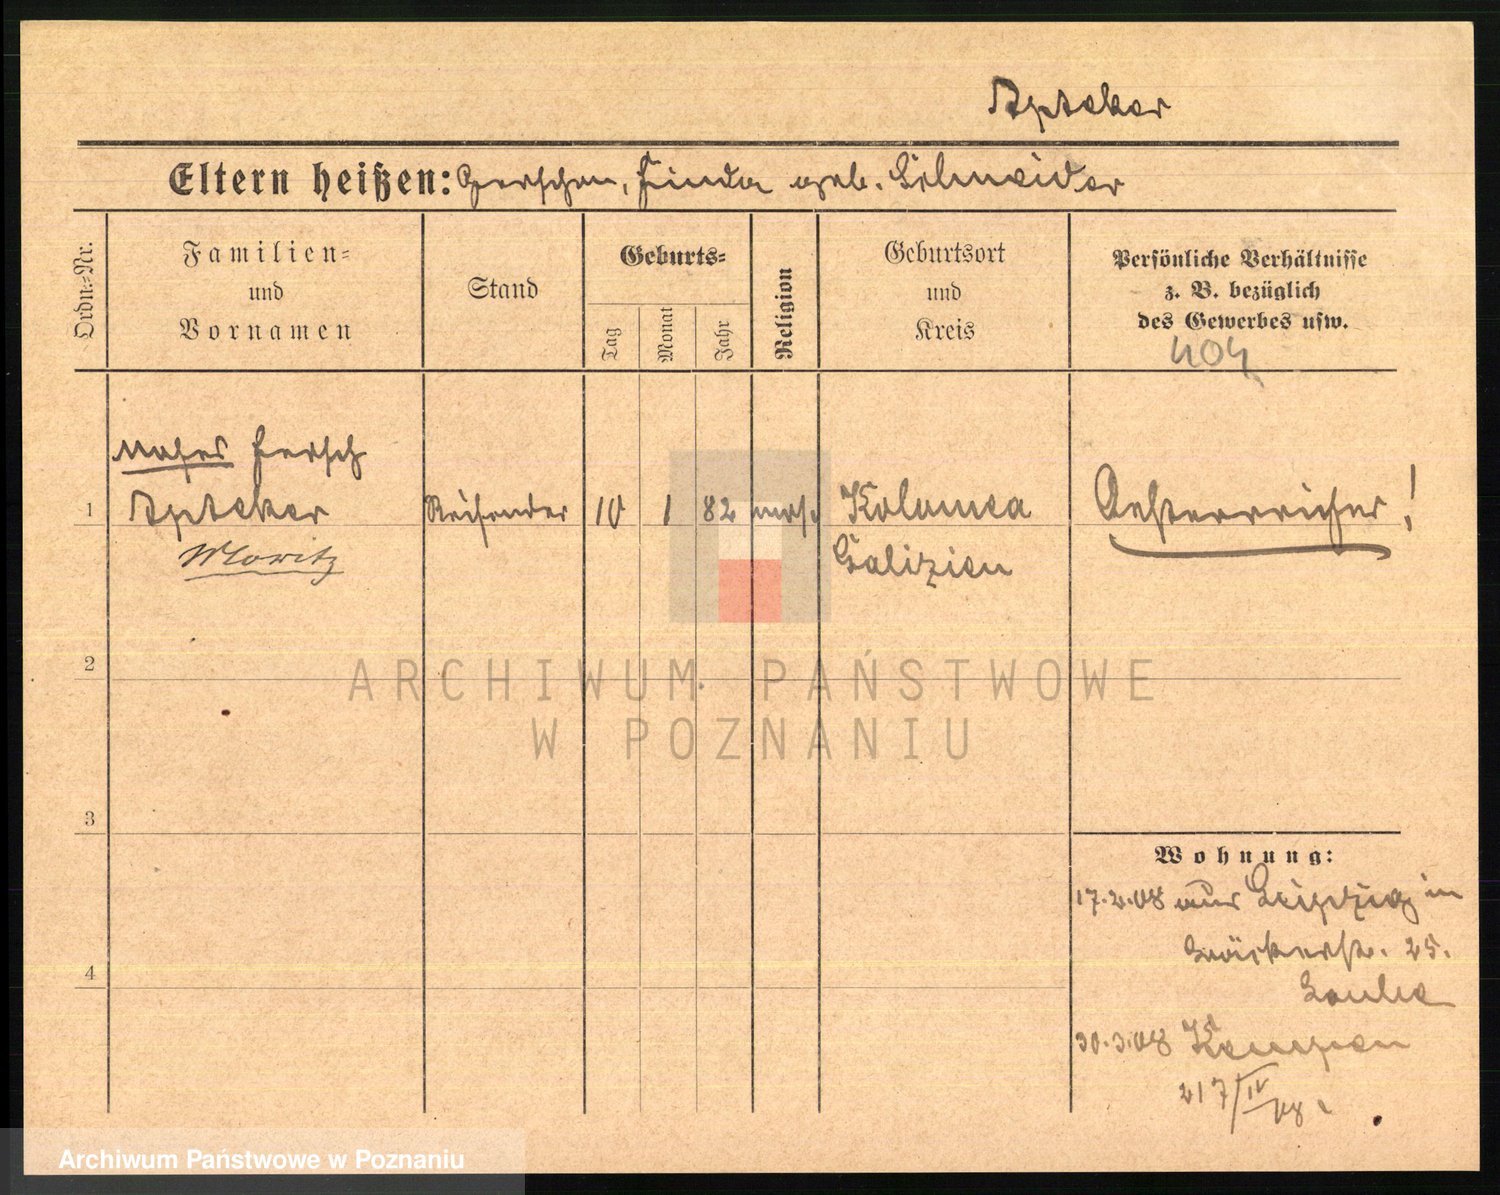 Apteker
Eltern heißen: Gerschon, Finda geb. Schneider
Ordn.-Nr.
Familien-
und
Vornamen
Stand
Geburts-
Tag
Monat
Jahr
Religion
Geburtsort
und
Kreis
Persönliche Verhältnisse
z. B. bezüglich
des Gewerbes usw.
404
Moses Hersch
1 Apteker Reisender 10 1 82 mos. Kolomea Oesterreicher!
Moritz Galizien
2
ARCHIWUM PAŃSTWOWE
W POZNANIU
3
Wohnung:
17.2.08 aus Leipzig in
25.
4
30.3.08 Kempen
217/IV 08.
Archiwum Państwowe w Poznaniu